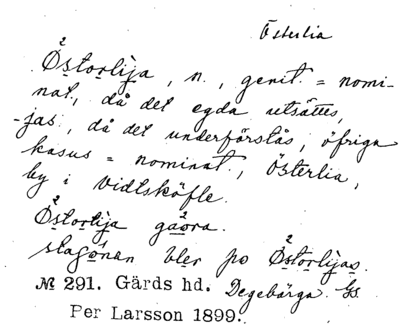 Österlia
Östorlija, n., genit. = nomi-
nat., då det egda utsättes,
-jas, då det underförstås, öfriga
kasus = nominat., Österlia,
by i Vidtsköfle.
Östorlija gåora.
stagönan bler po Östorlijas.
№ 291. Gärds hd. Degeberga Gs.
Per Larsson 1899.